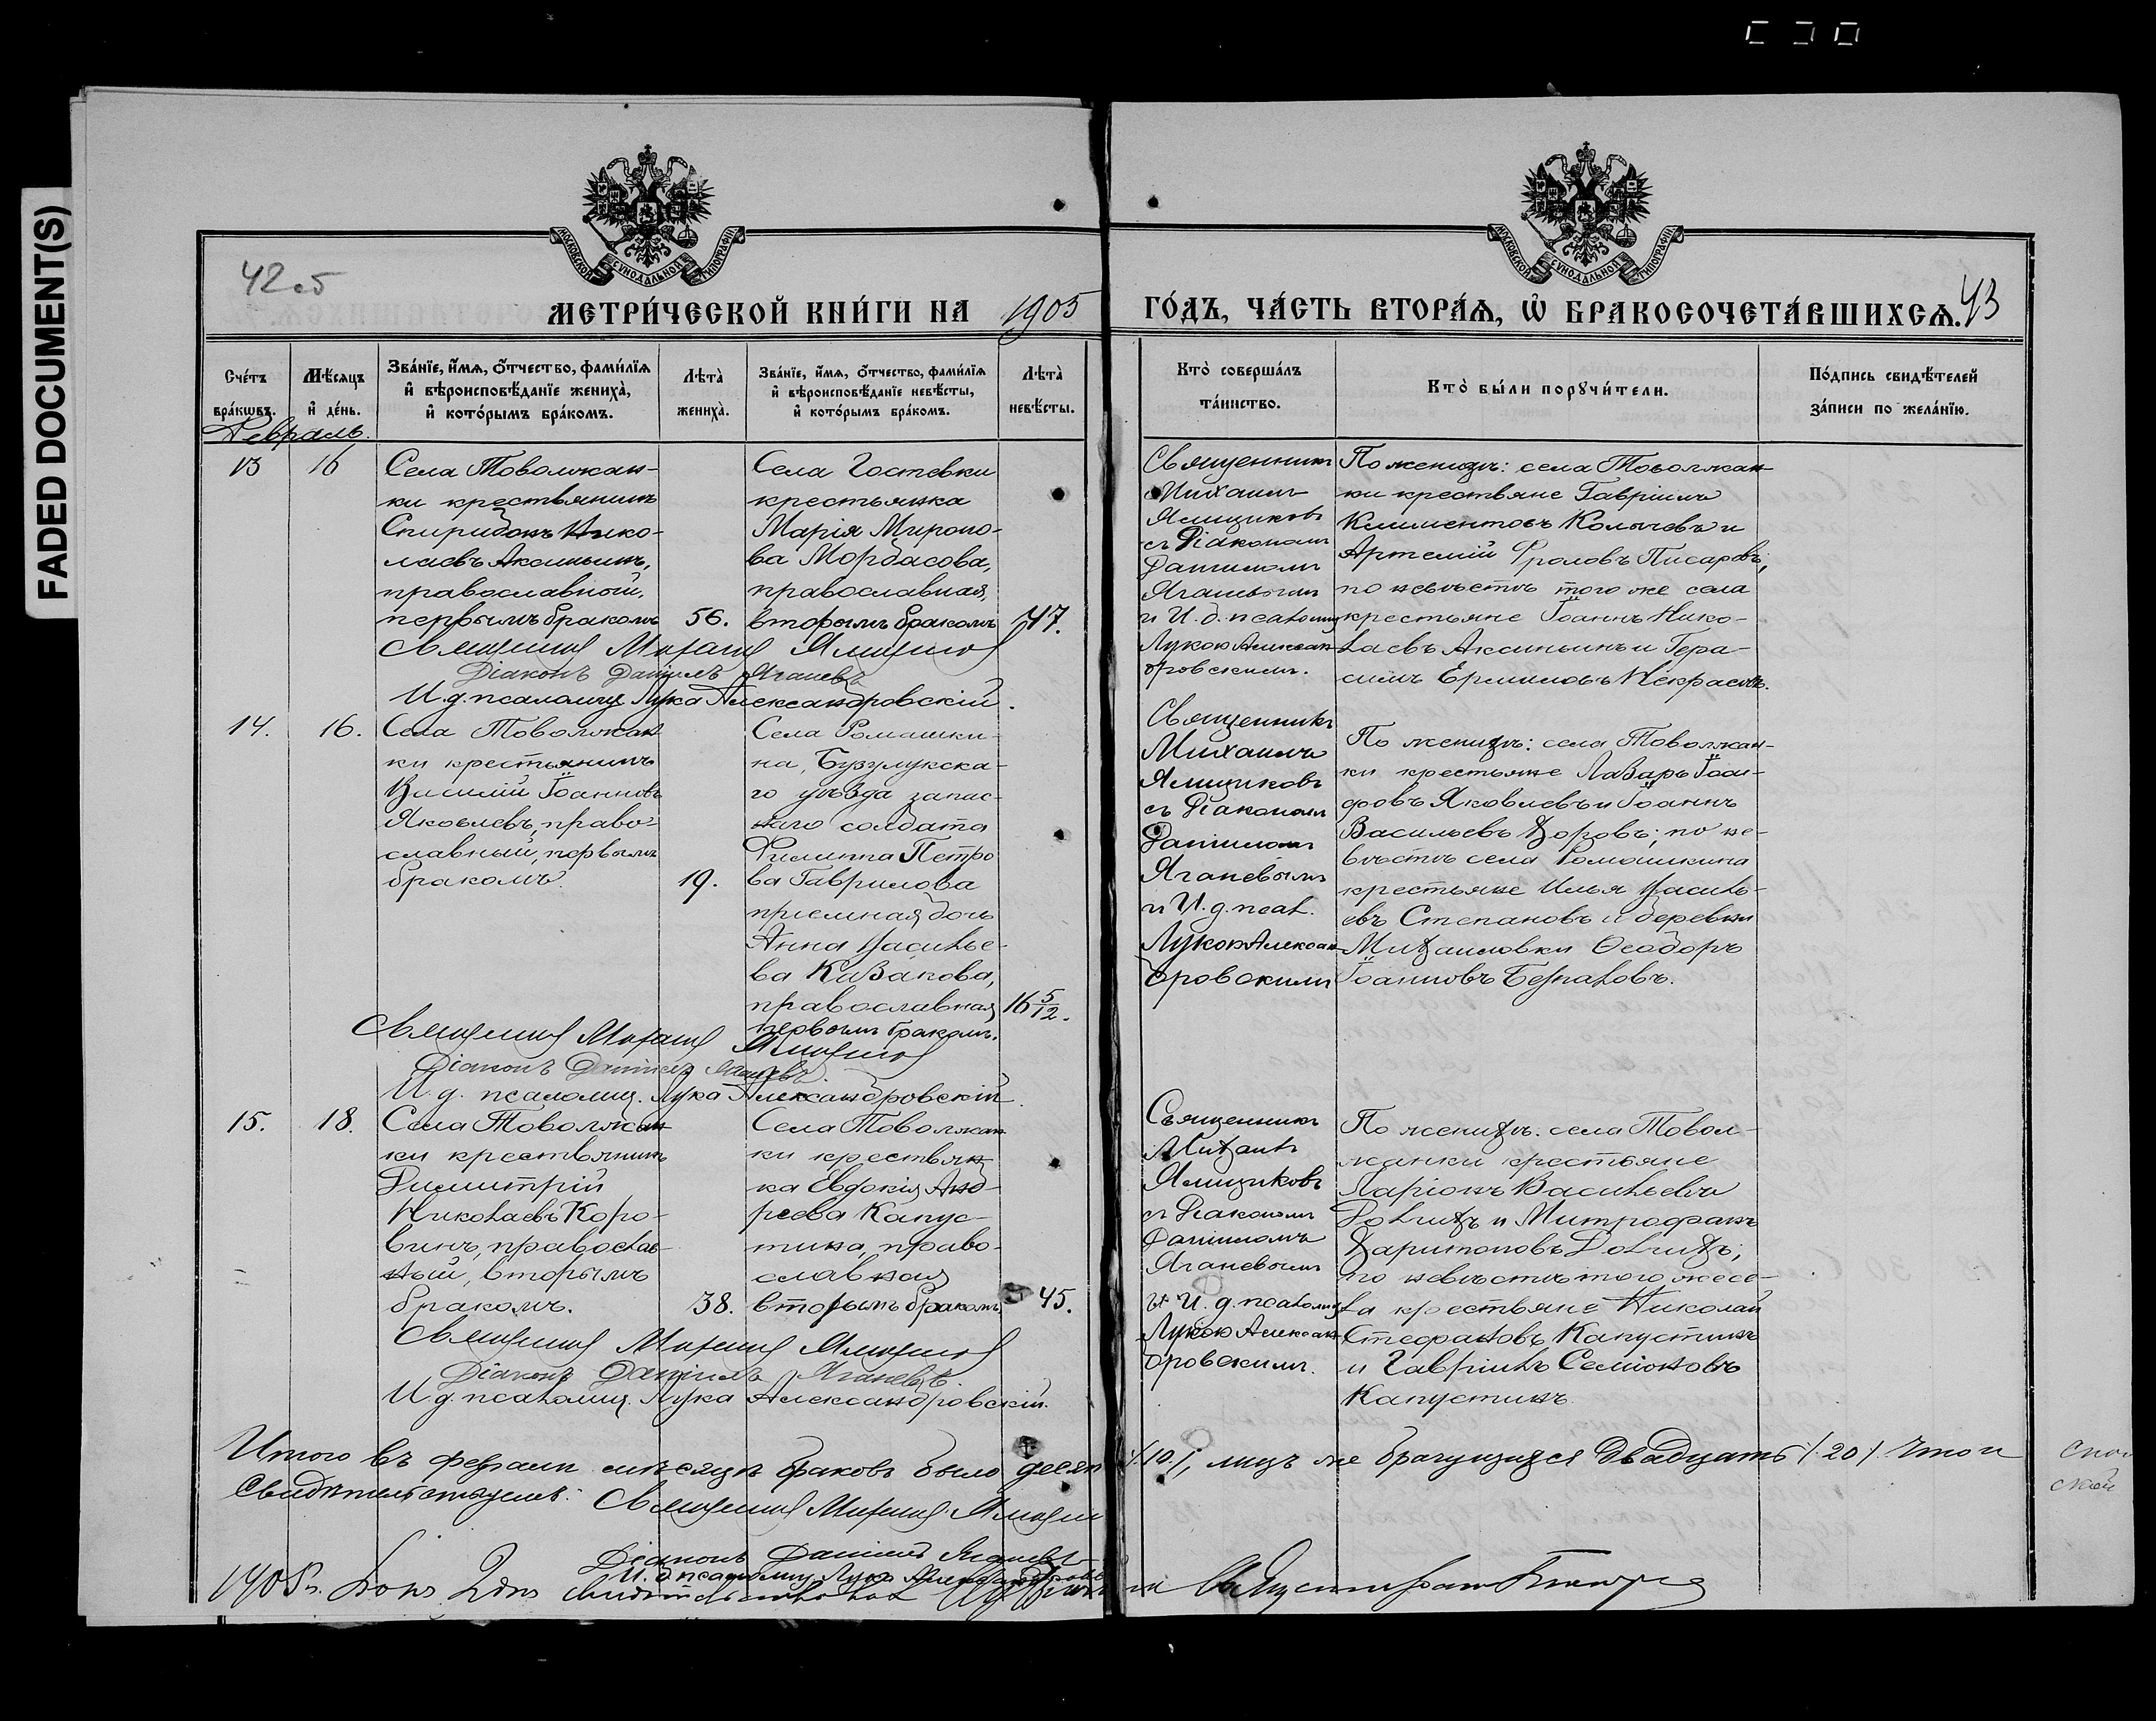 FADED DOCUMENT(S)
42об
МЕТРИ́ЧЕСКОЙ КНИ́ГИ НА 1905 ГО́ДЪ, ЧА́СТЬ ВТОРА́Ѧ, Ѽ БРАКОСОЧЕТА́ВШИХСѦ. 43
МОСКОВСКОЙ СѴНОДАЛЬНОЙ ТИПОГРАФІИ
МОСКОВСКОЙ СѴНОДАЛЬНОЙ ТИПОГРАФІИ
Сче́тъ бра́кѡвъ.
Мѣ́сяцъ и де́нь.
Зва́нїе, и́мя, о́тчество, фами́лїя
и вѣроисповѣ́данїе жениха̀,
и кото́рымъ бра́комъ.
Лѣта̀ жениха̀.
Зва́нїе, и́мя, о́тчество, фами́лїя
и вѣроисповѣ́данїе невѣ́сты,
и кото́рымъ бра́комъ.
Лѣта̀ невѣ́сты.
Кто̀ соверша́лъ
та́инство.
Кто̀ бы́ли порꙋчи́тели.
По́дпись свидѣ́телей
за́писи по жела́нїю.
Февраль.
13
16
Села Товолжан-
ки крестьянинъ
Спиридонъ Нико-
лаевъ Аксиньинъ,
православный,
первымъ бракомъ
56.
Села Гостевки
крестьянка
Марія Мироно-
ва Мордасова,
православная,
вторымъ бракомъ
47.
Священникъ
Михаилъ
Ямщиковъ
съ Діакономъ
Даніиломъ
Яганевымъ
и И. д. псаломщ
Лукою Алексан-
дровскимъ.
По женихѣ: села Товолжан-
ки крестьяне Гавріилъ
Климентовъ Колычевъ и
Артемій Фроловъ Писаревъ;
по невѣстѣ того же села
крестьяне Іоаннъ Нико-
лаевъ Аксиньинъ и Гера-
симъ Ермиловъ Некрасовъ.
Священникъ Михаилъ Ямщиковъ
Діаконъ Даніилъ Яганевъ
И. д. псаломщ. Лука Александровскій.
14.
16.
Села Товолжан
ки крестьянинъ
Василій Іоанновъ
Яковлевъ, право-
славный, первымъ
бракомъ.
19.
Села Ромашки-
на, Бузулукска-
го уѣзда запас-
наго солдата
Филиппа Петро
ва Гаврилова
приемная дочь
Анна Василье-
ва Казакова,
православная
первымъ бракомъ.
16 5/12.
Священникъ
Михаилъ
Ямщиковъ
съ Діакономъ
Даніиломъ
Яганевымъ
и И. д. псал.
Лукою Алексан-
дровскимъ
По женихѣ: села Товолжан-
ки крестьяне Лазарь Іоан-
новъ Яковлевъ и Іоаннъ
Васильевъ Хоровъ; по не-
вѣстѣ села Ромашкина
крестьяне Илья Василь-
евъ Степановъ и деревни
Михаиловки Ѳеодоръ
Іоанновъ
Священникъ Михаилъ Ямщиковъ
Діаконъ Даніилъ Яганевъ.
И. д. псаломщ. Лука Александровскій.
15.
18.
Села Товолжан
ки крестьянинъ
Димитрій
Николаевъ Коро-
винъ, православ-
ный, вторымъ
бракомъ.
38.
Села Товолжан
ки крестьян
ка Евдокія Анд-
реева Капус-
тина, право-
славная
вторымъ бракомъ
45.
Священникъ
Михаилъ
Ямщиковъ
съ Діакономъ
Даніиломъ
Яганевымъ
и И. д. псаломщ
Лукою Алексан-
дровскимъ.
По женихѣ: села Товол-
жанки крестьяне
Ларіонъ Васильевъ
Долгихъ и Митрофанъ
Харитоновъ Долгихъ;
по невѣстѣ того же се-
ла крестьяне Николай
Стефановъ Капустинъ
и Гавріилъ Семіоновъ
Капустинъ.
Священникъ Михаилъ Ямщиковъ
Діаконъ Даніилъ Яганевъ.
И. д. псаломщ. Лука Александровскій.
Итого въ февралѣ мѣсяцѣ браковъ было десять (10), лицъ же брачущихся двадцать (20) что и
свидѣтельствуемъ: Священникъ Михаилъ Ямщиковъ
Діаконъ Даніилъ Яганевъ
И. д. псаломщ. Лука Александровскій
1905 г.